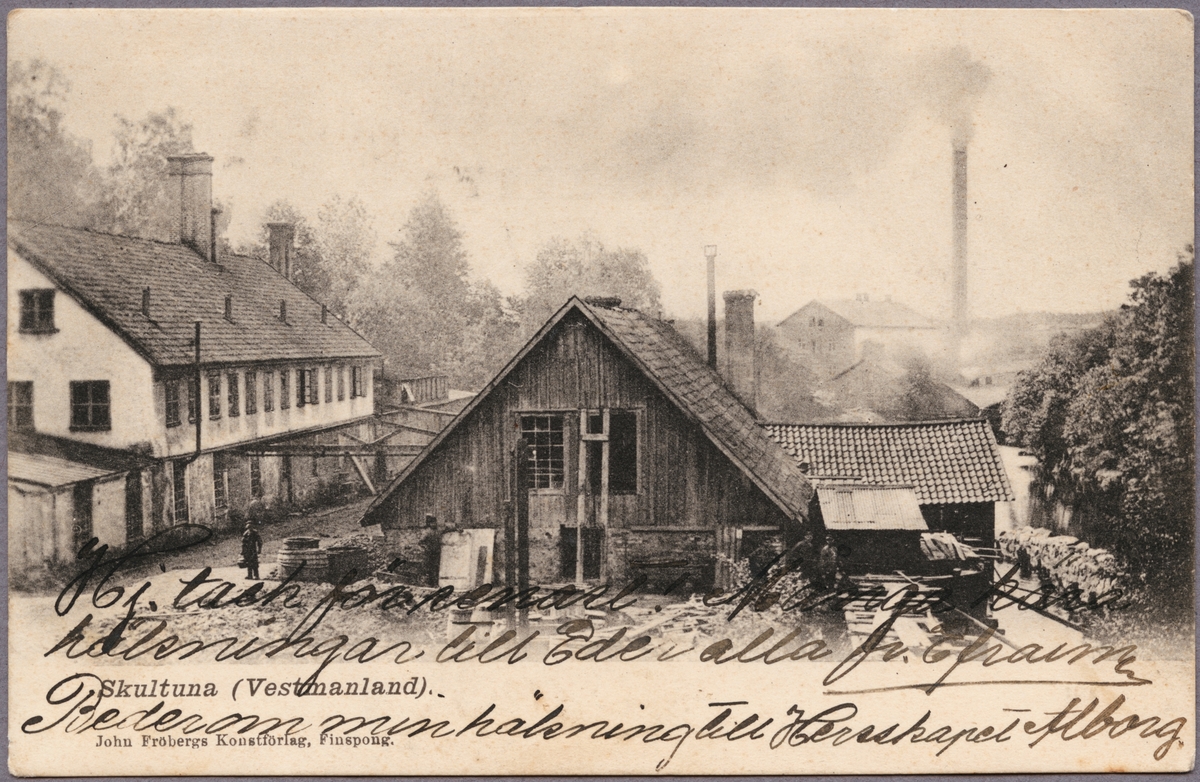 Hj. tack för senast! Många kära
hälsningar till Eder alla fr. Efraim
Skultuna (Vestmanland).
Beder om min hälsning till Herrskapet Alborg.
John Fröbergs Konstförlag, Finspong.